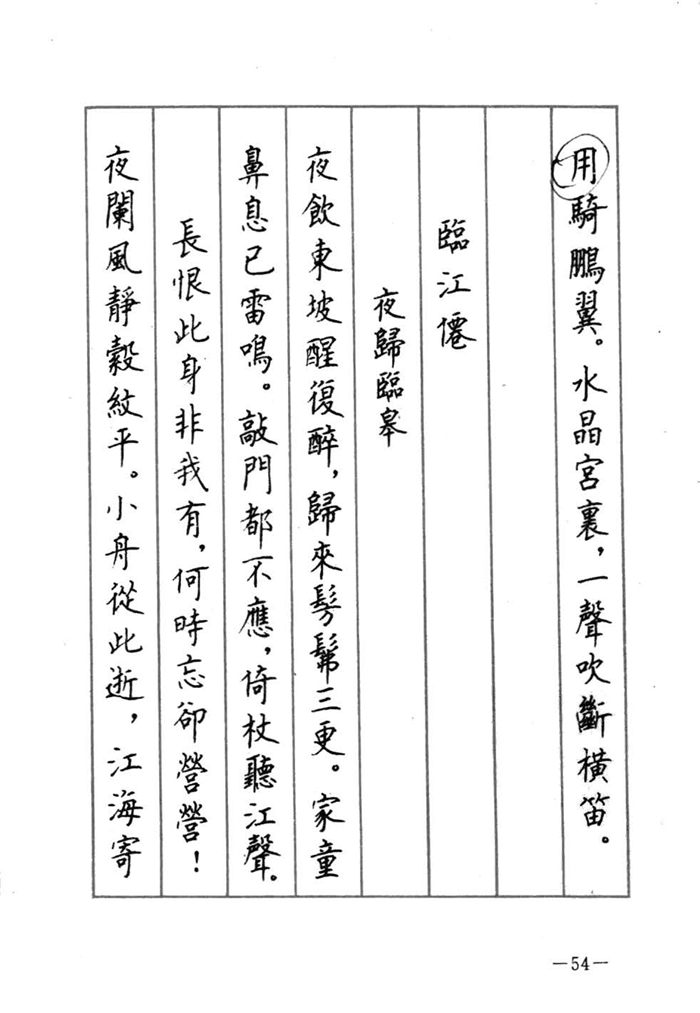 用騎鵬翼。水晶宮裏，一聲吹斷橫笛。
臨江僊
夜歸臨皋
夜飲東坡醒復醉，歸來髣髴三更。家童
鼻息已雷鳴。敲門都不應，倚杖聽江聲。
長恨此身非我有，何時忘卻營營！
夜闌風靜縠紋平。小舟從此逝，江海寄
—54—